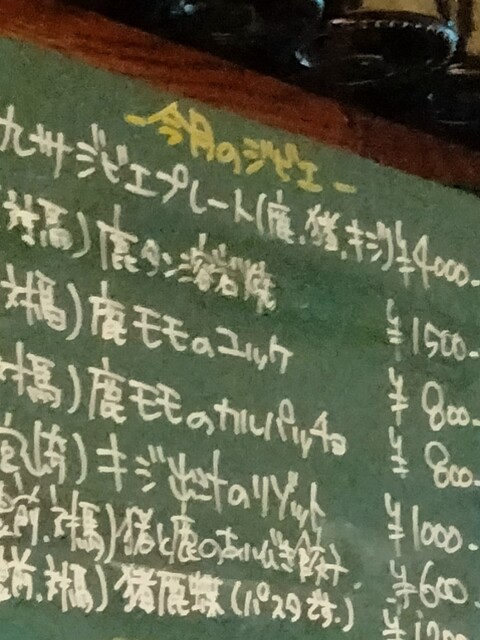 -今月のジビエ-
九州ジビエプレート(鹿、猪、キジ) ¥4000-
対馬)鹿タン溶岩焼 ¥1500-
対馬)鹿モモのユッケ ¥800-
対馬)鹿モモのカルパッチョ ¥800-
宮崎)キジ出汁のリゾット ¥1000-
豊前、対馬)猪と鹿のあいびき餃子 ¥600-
豊前、対馬)猪鹿蝶(パスタです。)